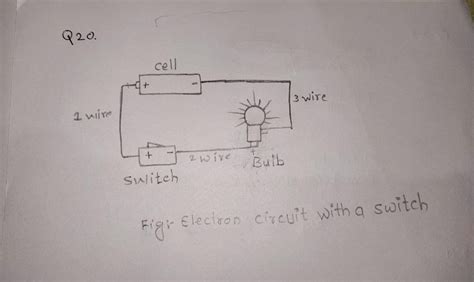 Q20.
cell
+ -
3 wire
1 wire
+ -
2 wire
+
Bulb
Switch
Fig:- Electron circuit with a switch